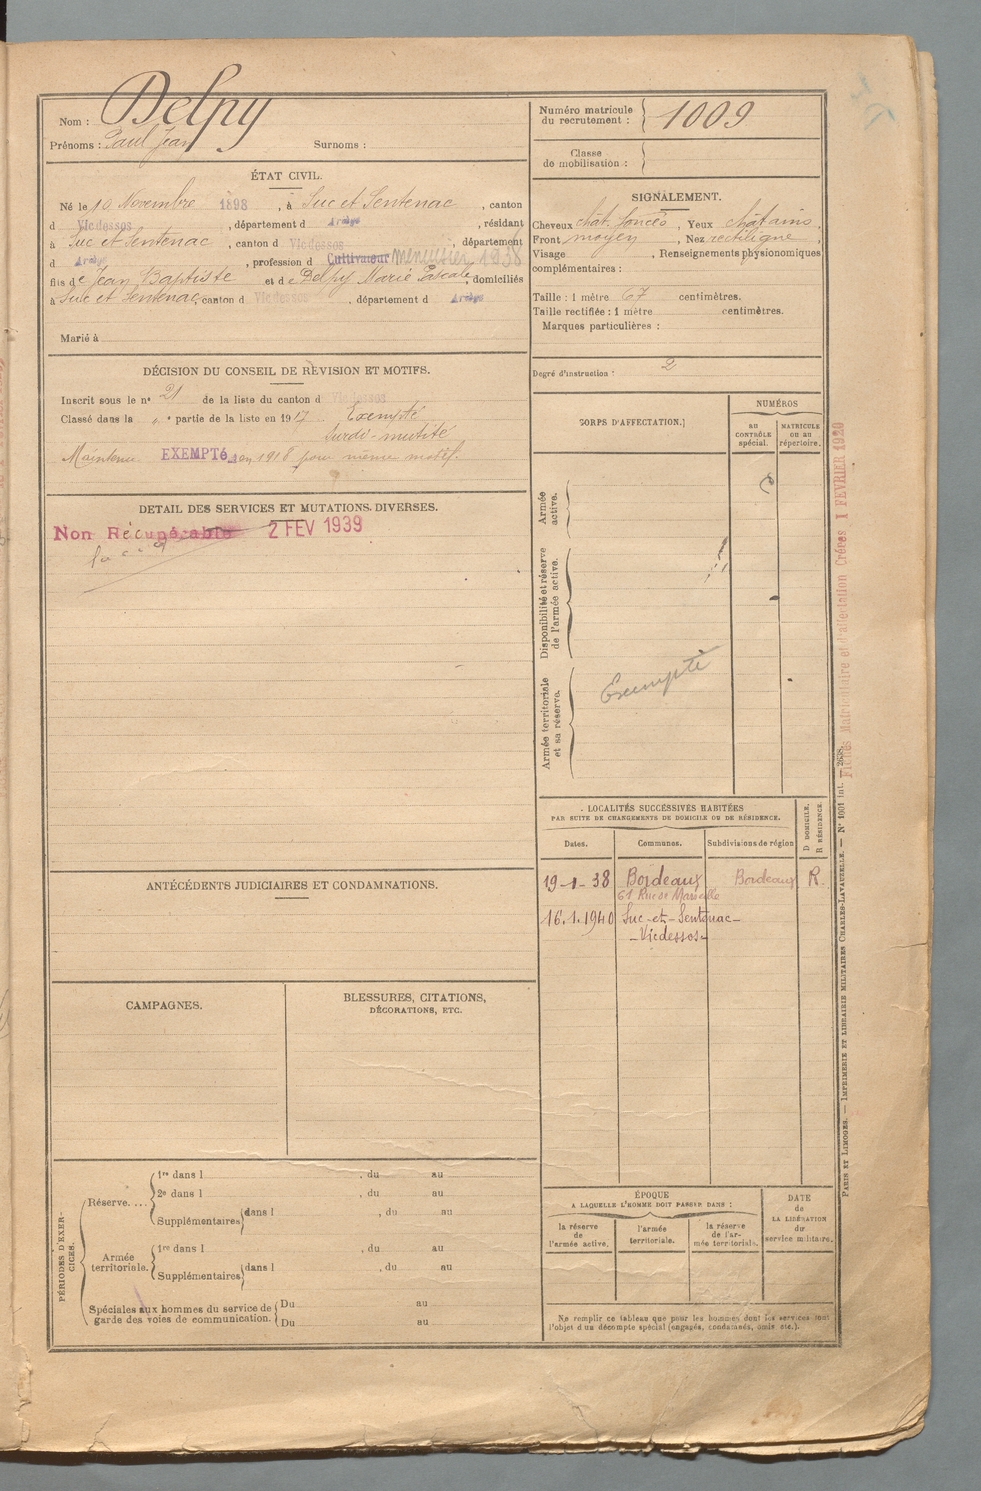 Nom : Delpy
Prénoms : Paul Jean Surnoms :
Numéro matricule du recrutement : 1009
Classe de mobilisation :
ÉTAT CIVIL.
Né le 10 Novembre 1898, à Suc et Sentenac, canton
d Vicdessos, département d Ariège, résidant
à Suc et Sentenac, canton d Vicdessos, département
d Ariège, profession d Cultivateur menuisier 1938
fils de Jean Baptiste et de Delpy Marie Pascale, domiciliés
à Suc et Sentenac, canton d Vicdessos, département d Ariège
Marié à
SIGNALEMENT.
Cheveux chat. foncés, Yeux châtains,
Front moyen, Nez rectiligne,
Visage , Renseignements physionomiques
complémentaires :
Taille : 1 mètre 67 centimètres.
Taille rectifiée : 1 mètre centimètres.
Marques particulières :
Degré d'instruction : 2
DÉCISION DU CONSEIL DE RÉVISION ET MOTIFS.
Inscrit sous le nº 21 de la liste du canton d Vicdessos
Classé dans la " e partie de la liste en 1917 Exempté
Surdi-mutité
Maintenu EXEMPTé en 1918 pour même motif.
DÉTAIL DES SERVICES ET MUTATIONS DIVERSES.
Non Récupérable 2 FEV 1939
CORPS D'AFFECTATION.
NUMÉROS
AU CONTRÔLE spécial.
MATRICULE ou au répertoire.
Armée active.
Disponibilité et réserve de l'armée active.
Armée territoriale et sa réserve.
Exempté
LOCALITÉS SUCCESSIVES HABITÉES
PAR SUITE DE CHANGEMENTS DE DOMICILE OU DE RÉSIDENCE.
D DOMICILE.
R RÉSIDENCE.
Dates. Communes. Subdivisions de région
19-1-38 Bordeaux Bordeaux R.
61 Rue de Marseille
16.1.1940 Suc-et-Sentenac-
-Vicdessos-
ANTÉCÉDENTS JUDICIAIRES ET CONDAMNATIONS.
CAMPAGNES.
BLESSURES, CITATIONS,
DÉCORATIONS, ETC.
PÉRIODES D'EXERCICES.
Réserve....
1re dans l , du au
2e dans l , du au
Supplémentaires dans l , du au
Armée territoriale.
1re dans l , du au
Supplémentaires dans l , du au
Spéciales aux hommes du service de garde des voies de communication.
Du au
Du au
ÉPOQUE
A LAQUELLE L'HOMME DOIT PASSER DANS :
la réserve de l'armée active.
l'armée territoriale.
la réserve de l'armée territoriale.
DATE de LA LIBÉRATION du service militaire.
Ne remplir ce tableau que pour les hommes dont les services sont
l'objet d'un décompte spécial (engagés, condamnés, omis etc.).
Fiches Matriculaire et d'affectation Créées 1 FEVRIER 1920
PARIS ET LIMOGES. — IMPRIMERIE ET LIBRAIRIE MILITAIRES CHARLES-LAVAUZELLE. — Nº 1001 int. — 2638.